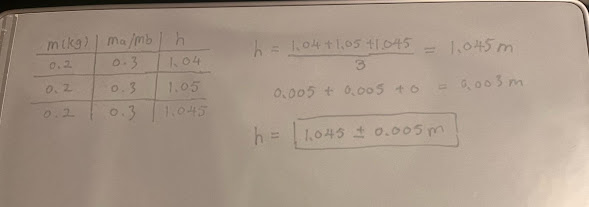 m(kg) ma/mb h
0.2 0.3 1.04
0.2 0.3 1.05
0.2 0.3 1.045
h = 1.04 + 1.05 + 1.045 / 3 = 1.045 m
0.005 + 0.005 + 0 = 0.003 m
h = 1.045 ± 0.005 m